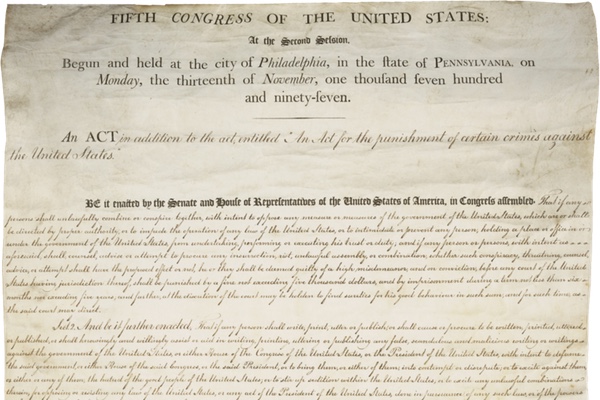 FIFTH CONGRESS OF THE UNITED STATES:
At the Second Session,
Begun and held at the city of Philadelphia, in the state of PENNSYLVANIA, on
Monday, the thirteenth of November, one thousand seven hundred
and ninety-seven.
An ACT in addition to the act, entitled "An Act for the punishment of certain crimes against
the United States."
BE it enacted by the Senate and House of Representatives of the United States of America, in Congress assembled. That if any
persons shall unlawfully combine or conspire together, with intent to oppose any measure or measures of the government of the United States, which are or shall
be directed by proper authority, or to impede the operation of any law of the United States, or to intimidate or prevent any person, holding a place or office in or
under the government of the United States, from undertaking, performing or executing his trust or duty; and if any person or persons, with intent as
aforesaid, shall counsel, advise or attempt to procure any insurrection, riot, unlawful assembly, or combination, whether such conspiracy, threatening, counsel,
advice, or attempt shall have the proposed effect or not, he or they shall be deemed guilty of a high misdemeanor, and on conviction, before any court of the United
States having jurisdiction thereof, shall be punished by a fine not exceeding five thousand dollars, and by imprisonment during a term not less than six
months nor exceeding five years; and further, at the discretion of the court may be holden to find sureties for his good behaviour in such sum, and for such time, as
the said court may direct.
Sect. 2. And be it further enacted, That if any person shall write, print, utter or publish, or shall cause or procure to be written, printed, uttered
or published, or shall knowingly and willingly assist or aid in writing, printing, uttering or publishing any false, scandalous and malicious writing or writings
against the government of the United States, or either House of the Congress of the United States, or the President of the United States, with intent to defame
the said government, or either House of the said Congress, or the said President, or to bring them, or either of them, into contempt or disrepute; or to excite against them,
or either or any of them, the hatred of the good people of the United States, or to stir up sedition within the United States, or to excite any unlawful combinations
therein, for opposing or resisting any law of the United States, or any act of the President of the United States, done in pursuance of any such law, or of the powers